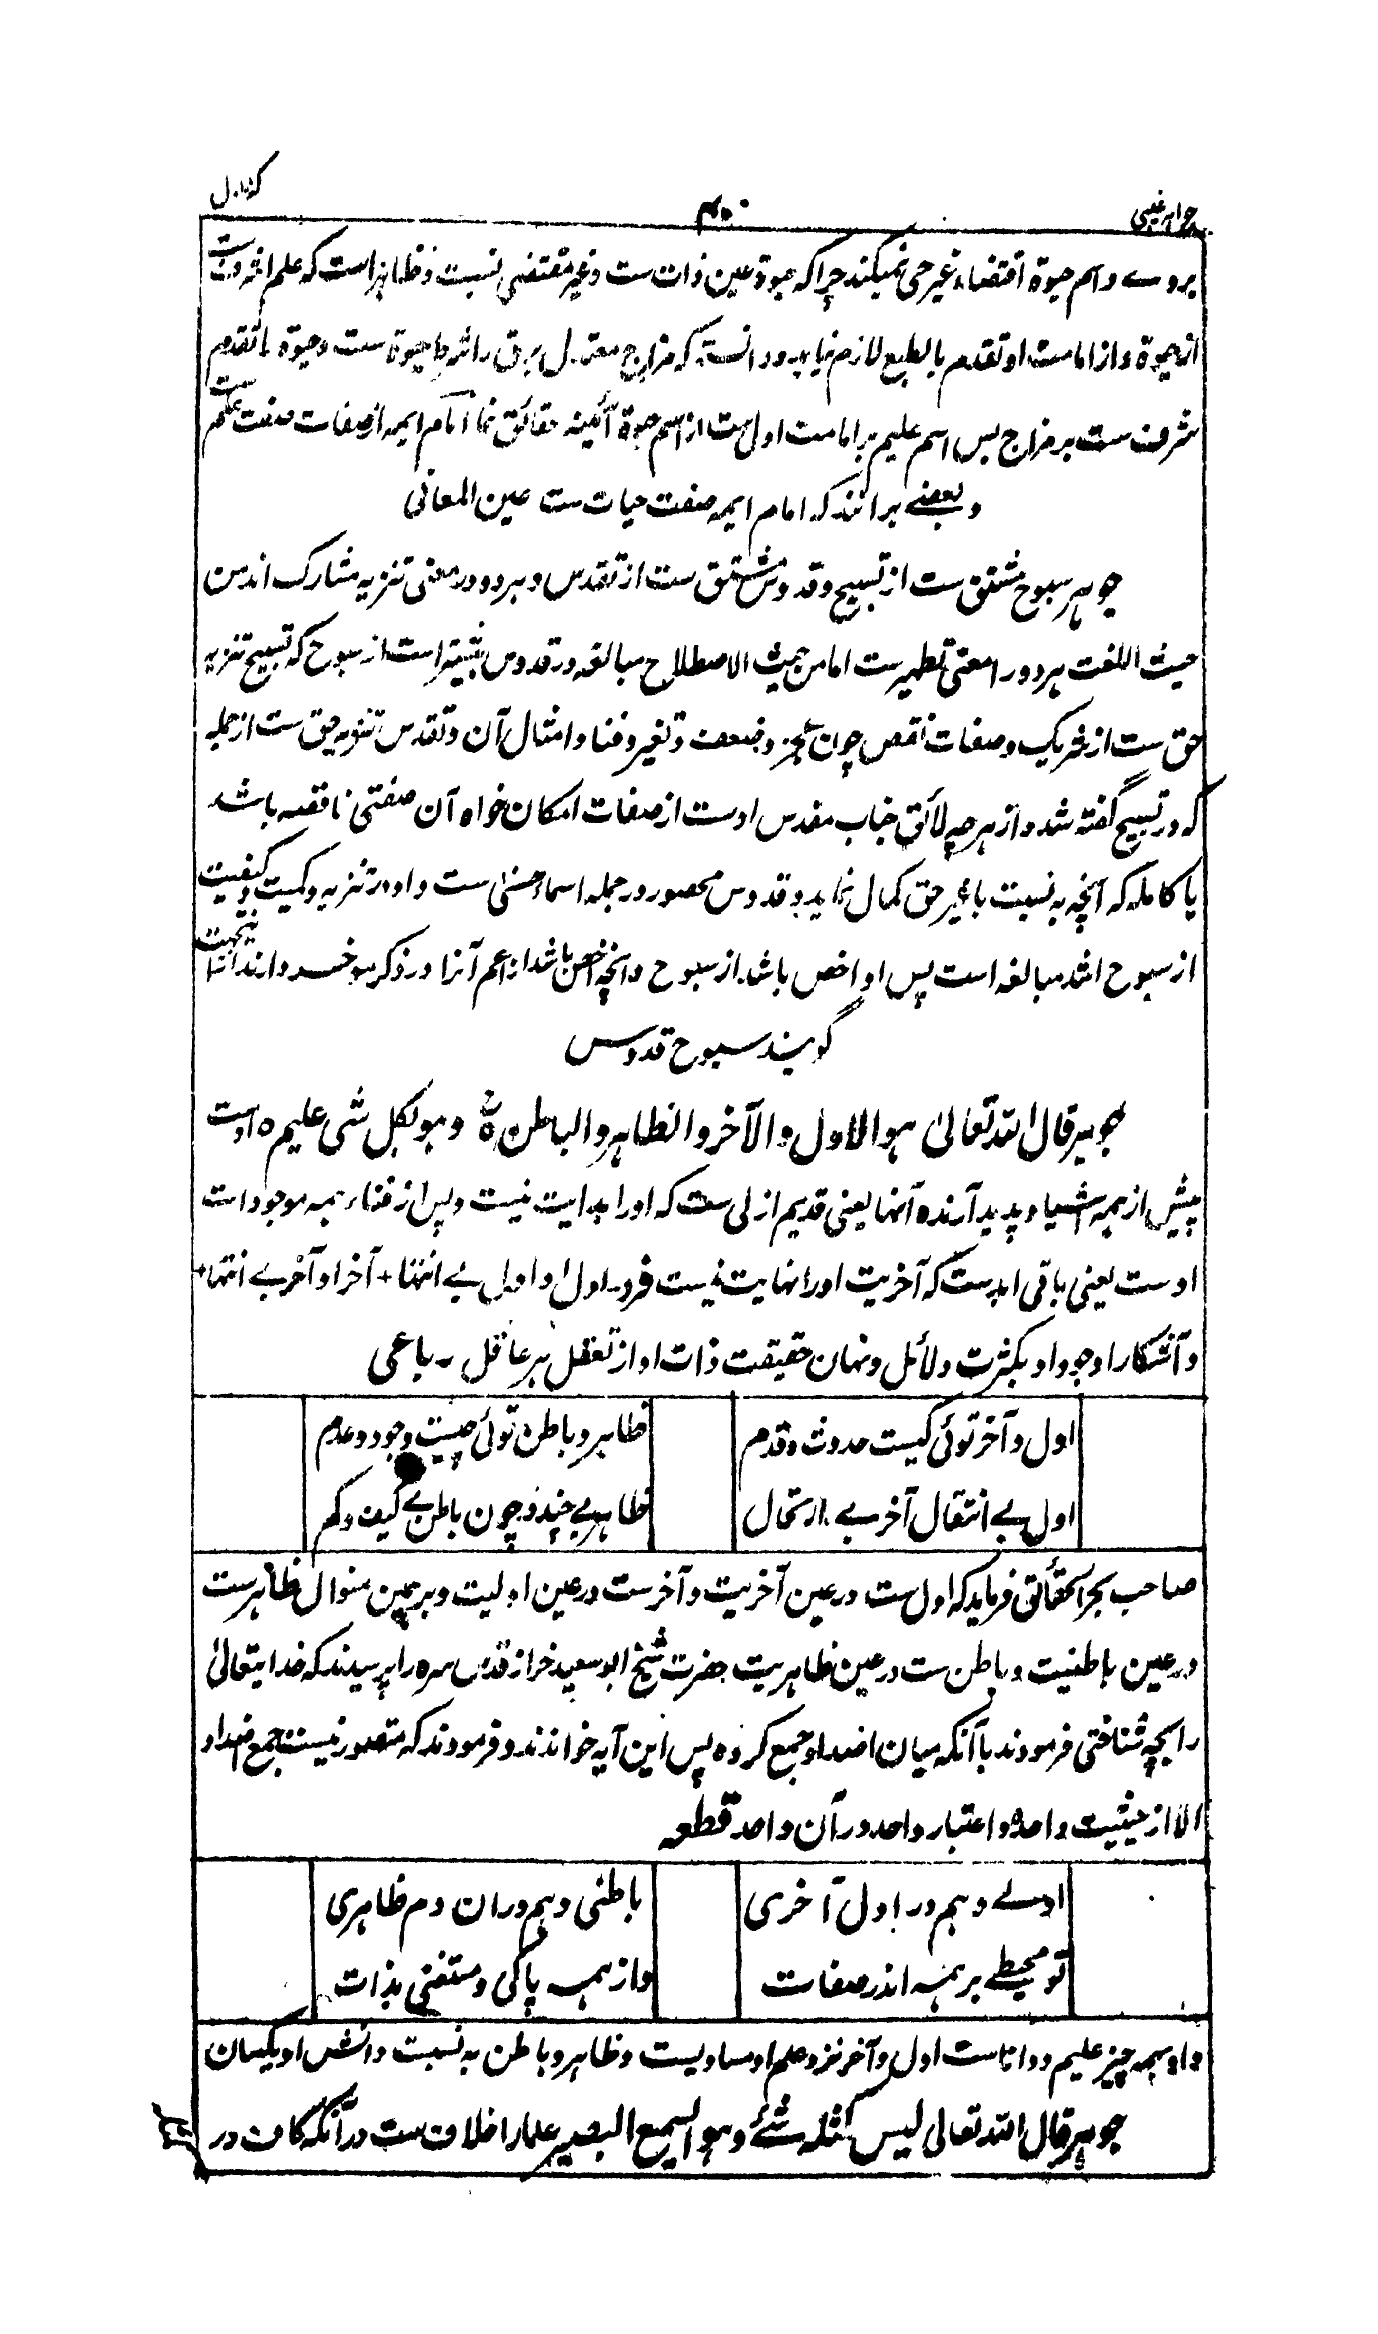 جواہر غیبی
۴۵۰
کنز اول
بروے واسم حیوة اقتضاء غیر حی نمیکند چرا که حیوة عین ذات ست وغیر مقتضی نسبت وظاہر است که علم اشرف ست
از حیوة واز امامت او تقدم بالطبع لازم نیاید ودانسته که مزاج معتدل برق را شرط حیوة ست وحیوة با تقدم
شرف ست بر مزاج پس اسم علیم برامامت اولی ست از اسم حیوة آئینہ حقائق نما امام ایمہ از صفات صفت علم ست
وبعضے برانند که امام ایمہ صفت حیات ست عین المعانی
جوہر سبوح مشتق ست از تسبیح وقدوس مشتق ست از تقدس وہردو در معنی تنزیہ مشارک اند من
حیث اللغت ہردو را معنی تطہیر ست اما من حیث الاصطلاح مبالغہ در قدوس بیشتر است از سبوح که تسبیح تنزیہ
حق ست از شریک وصفات نقص چون عجز وضعف وتغیر وفنا وامثال آن وتقدس تنزیہ حق ست از جملہ
که در تسبیح گفته شد واز ہر چہ لائق جناب مقدس اوست از صفات امکان خواہ آن صفتی ناقصہ باشد
یا کاملہ که آنچہ بہ نسبت با غیر حق کمال نماید وقدوس محصور در جملہ اسماء حسنی ست واو در تنزیہ وکمیت وکیفیت
از سبوح اشد مبالغہ است پس او اخص باشد از سبوح وآنچہ اخص باشد از اعم آنرا در ذکر موخر دارند ازینجہت
گویند سبوح قدوس
جوہر قال اللہ تعالیٰ ہو الاول والآخر والظاہر والباطن وہو بکل شی علیم ہ اوست
پیش از ہمہ اشیاء وپدید آرنده آنہا یعنی قدیم ازلی ست که او را بدایت نیست وپس از فناء ہمہ موجودات
اوست یعنی باقی ابدیست که آخریت اورا نہایت نیست فرد اول او اول بے ابتدا + آخر او آخر بے انتہا +
وآشکارا وجود او بکثرت دلائل ونہان حقیقت ذات او از تعقل ہر عاقل رباعی
اول وآخر توئی کیست حدوث وقدم
ظاہر وباطن توئی چیست وجود وعدم
اول بے انتقال آخر بے ارتحال
ظاہر بے چند وچون باطن بے کیف وکم
صاحب بحر الحقائق فرماید که اول ست در عین آخریت وآخر ست در عین اولیت وبر ہمین منوال ظاہر ست
در عین باطنیت وباطن ست در عین ظاہریت حضرت شیخ ابو سعید خراز قدس سرہ را پرسیدند که خدا یتعالیٰ
را بچہ شناختی فرمودند بآنکہ میان اضداد جمع کرده پس این آیہ خواندند وفرمودند که متصور نیست جمع اضداد
الا از حیثیت واحده واعتبار واحد در آن واحد قطعہ
اولے وہم در اول آخری
باطنی وہم دران دم ظاہری
تو محیطے بر ہمہ اندر صفات
واز ہمہ پاکی ومستغنی بذات
واو بہمہ چیز علیم ودانا ست اول وآخر نزد علم او مساویست وظاہر وباطن بہ نسبت دانش او یکسان
جوہر قال اللہ تعالی لیس کمثلہ شئے وہو السمیع البصیر علما را خلاف ست در آنکہ کاف در